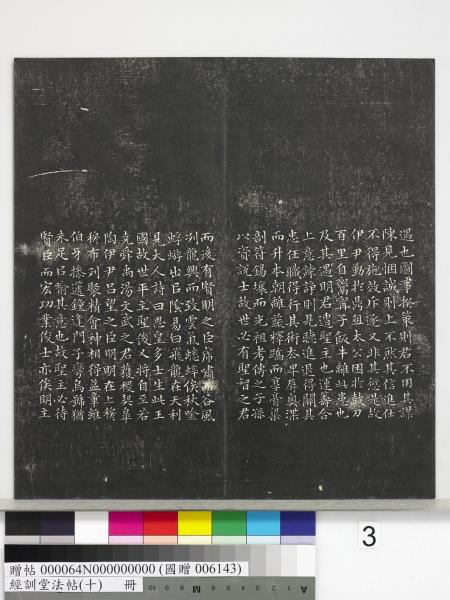 遇也圖事揆策則君不用其謀
陳見悃誠則上不然其信進仕
不得施效斥逐又非其愆是故
伊尹勤於鼎俎太公困於鼓刀
百里自鬻甯子飯牛離此患也
及其遇明君遭聖主也運籌合
上意諫諍則見聽進退得關其
忠任職得行其術去卑辱奧渫
而升本朝離蔬釋蹻而享膏粱
剖符錫壤而光祖考傳之子孫
以資說士故世必有聖知之君
而後有賢明之臣虎嘯而谷風
冽龍興而致雲氣蟋蟀俟秋唫
蜉蝣出以陰易曰飛龍在天利
見大人詩曰思皇多士生此王
國故世平主聖俊乂將自至若
堯舜禹湯文武之君獲稷契皋
陶伊尹呂望之臣明明在上穆
穆布列聚精會神相得益章雖
伯牙操遞鐘逢門子彎烏號猶
未足以喻其意也故聖主必待
賢臣而宏功業俊士亦俟明主
3
贈帖 000064N000000000 (國贈 006143)
經訓堂法帖(十) 冊